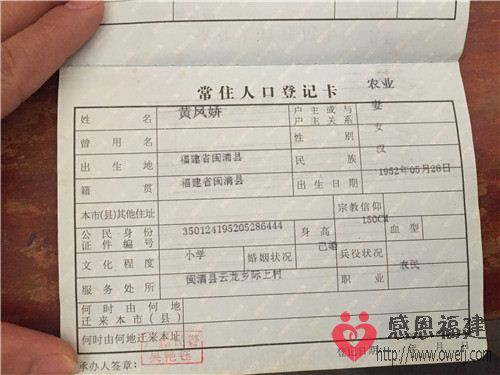 农业
常住人口登记卡
姓名 黄风娇 户主或与户主关系 妻
曾用名 性别 女
出生地 福建省闽清县 民族 汉
籍贯 福建省闽清县 出生日期 1952年05月28日
本市(县)其他住址 宗教信仰
公民身份证件编号 350124195205286444 身高 150CM 血型
文化程度 小学 婚姻状况 已婚 兵役状况
服务处所 闽清县云龙乡际上村 职业 农民
何时由何地迁来本市(县)
何时由何地迁来本址
承办人签章: 登记日期: 年 月 日
感恩福建
www.owefj.com